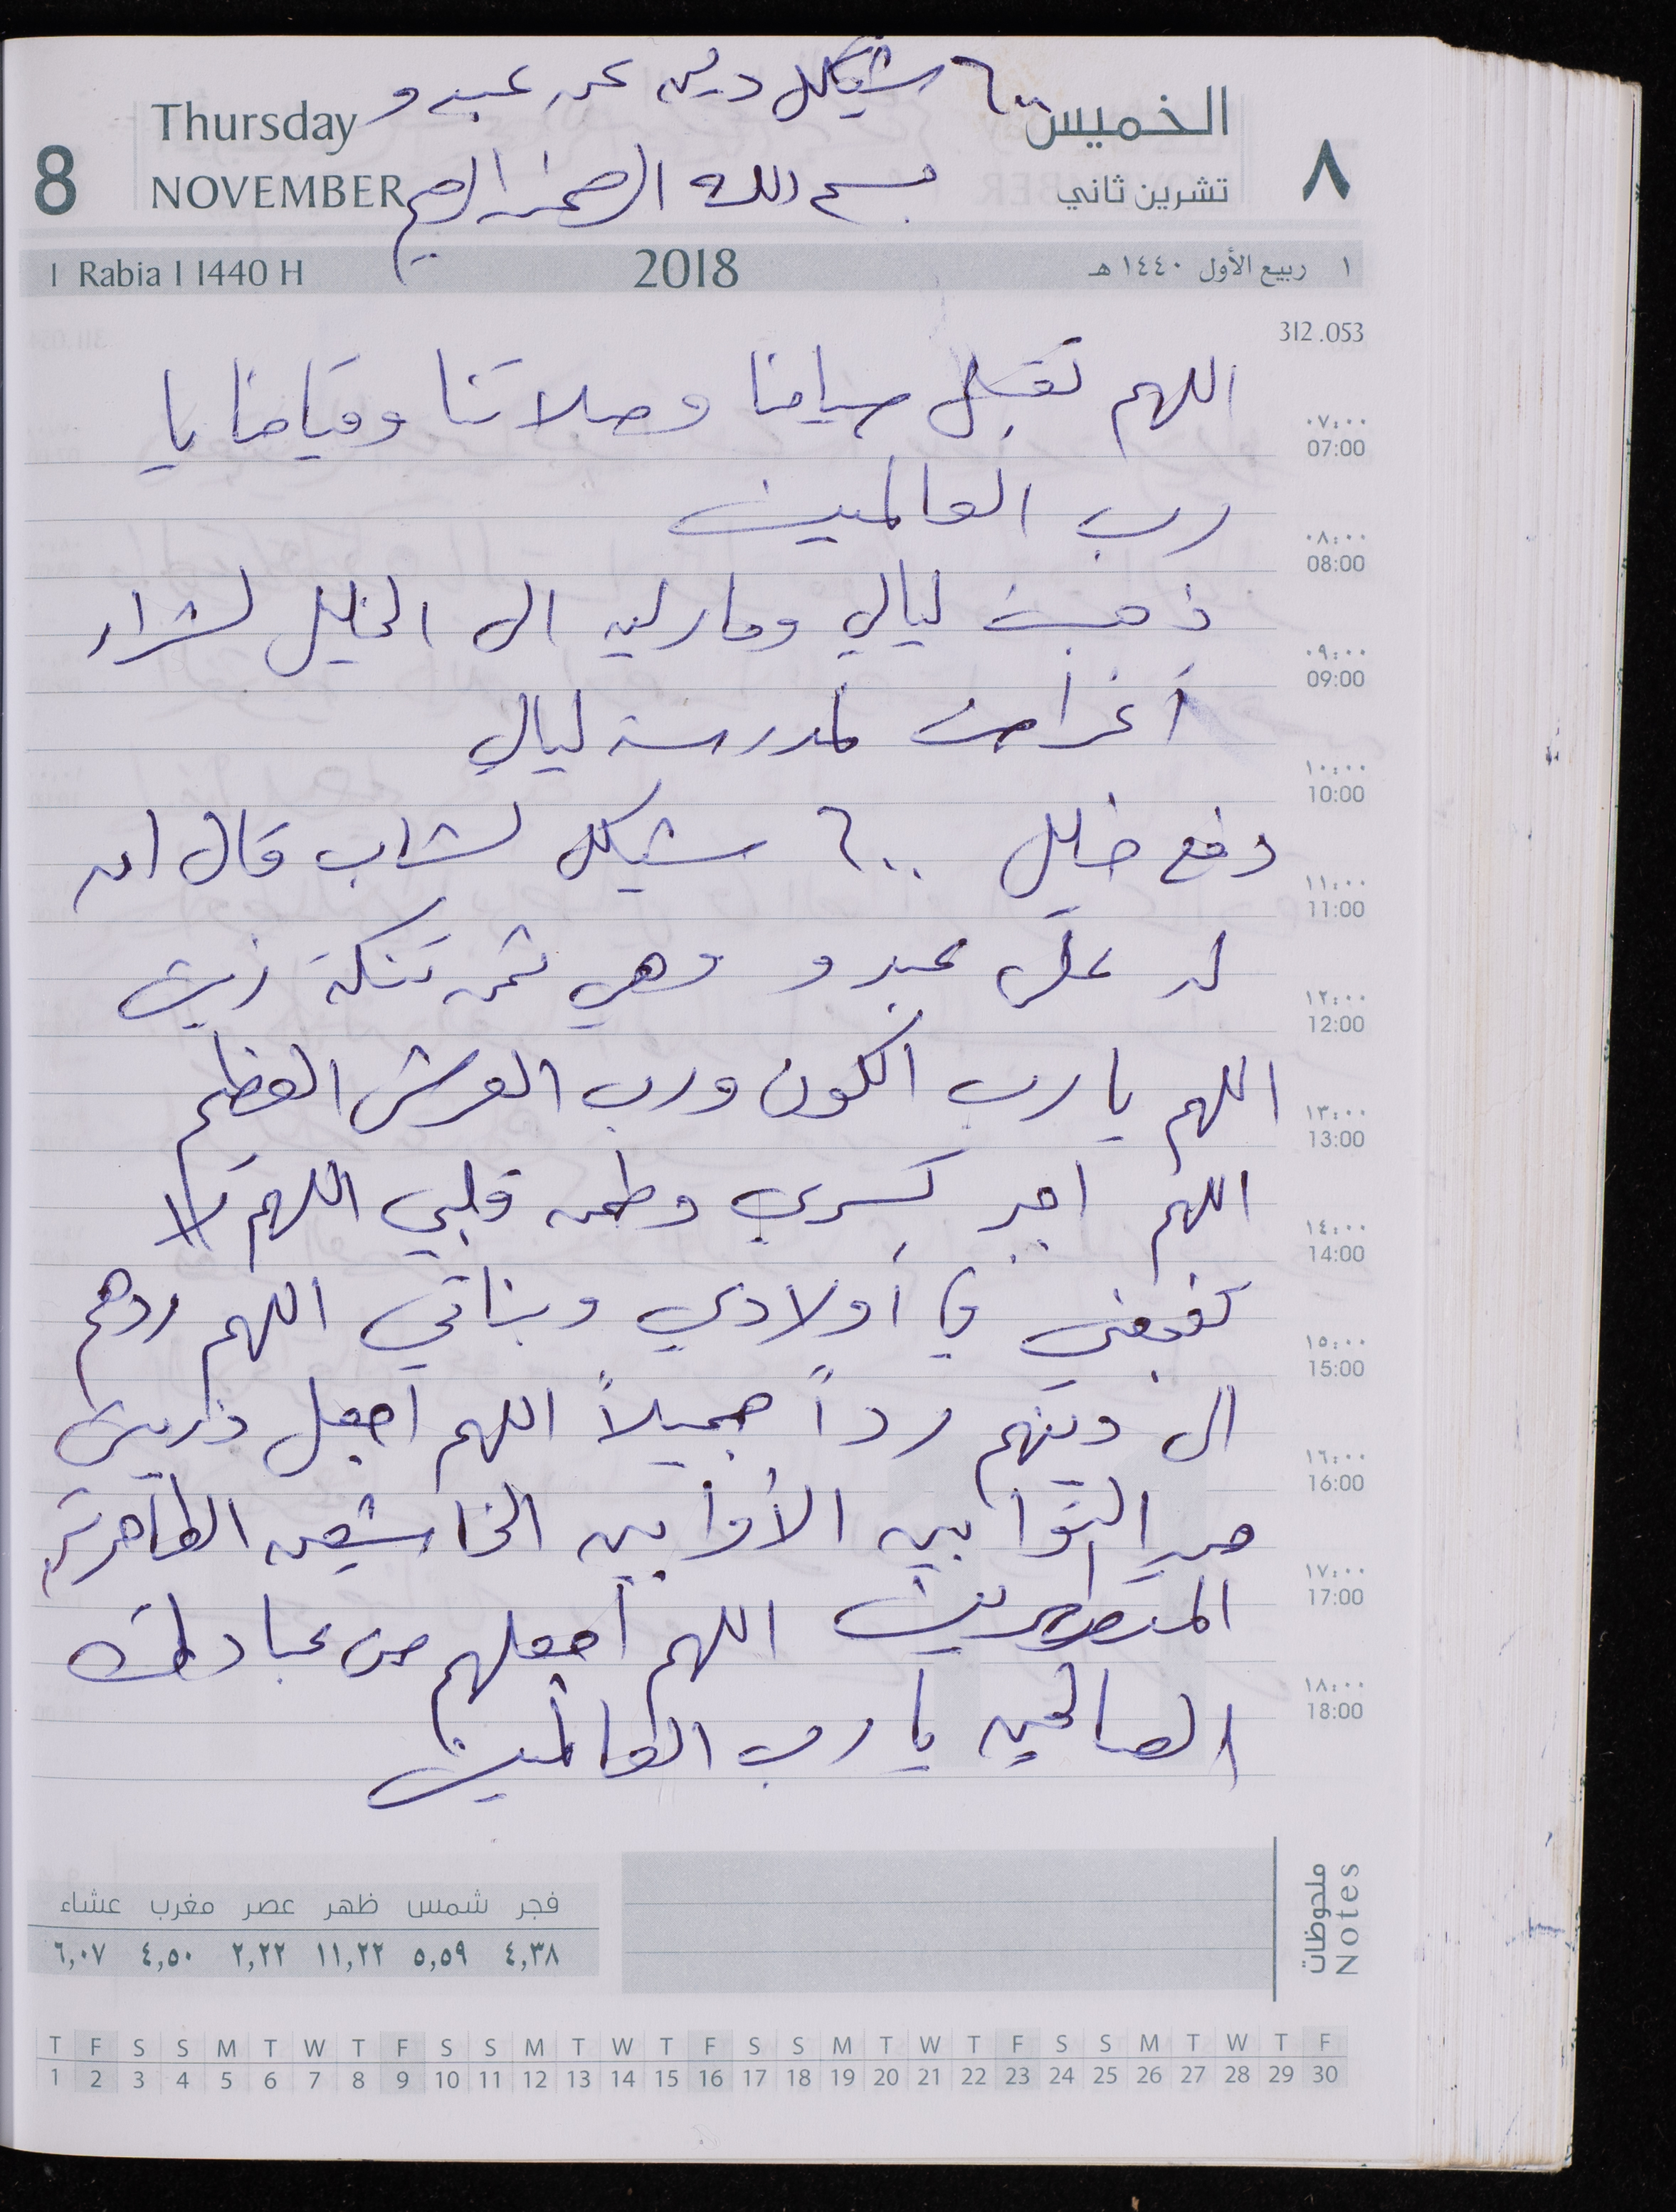 ٦٠٠ شيكل دين عن عبدو
الخميس
Thursday
٨
8
بسم الله الرحمن الرحيم
تشرين ثاني
NOVEMBER
١ ربيع الأول ١٤٤٠ هـ
2018
1 Rabia I 1440 H
312.053
اللهم تقبل صيامنا وصلاتنا وقيامنا يا
٠٧:٠٠
07:00
رب العالمين
٠٨:٠٠
08:00
ذهبت ليالي ومارلين الى الخليل لشراء
٠٩:٠٠
09:00
أغراض لمدرسة ليالي
١٠:٠٠
10:00
دفع خليل ٦٠٠ شيكل لشاب قال ان
١١:٠٠
11:00
له على عبدو وهي ثمن تنكة زيت
١٢:٠٠
12:00
اللهم يا رب الكون ورب العرش العظيم
١٣:٠٠
13:00
اللهم اجبر كسري وطمن قلبي اللهم لا
١٤:٠٠
14:00
تفجعني في أولادي وبناتي اللهم ردهم
١٥:٠٠
15:00
الى دينهم رداً جميلاً اللهم اجعل ذريتي
١٦:٠٠
16:00
من التوابين الأوابين الخاشعين الطاهرين
١٧:٠٠
17:00
المتطهرين اللهم أجعلهم من عبادك
١٨:٠٠
18:00
الصالحين يا رب العالمين
ملحوظات
Notes
فجر شمس ظهر عصر مغرب عشاء
٤,٣٨ ٥,٥٩ ١١,٢٢ ٢,٢٢ ٤,٥٠ ٦,٠٧
T F S S M T W T F S S M T W T F S S M T W T F S S M T W T F
1 2 3 4 5 6 7 8 9 10 11 12 13 14 15 16 17 18 19 20 21 22 23 24 25 26 27 28 29 30